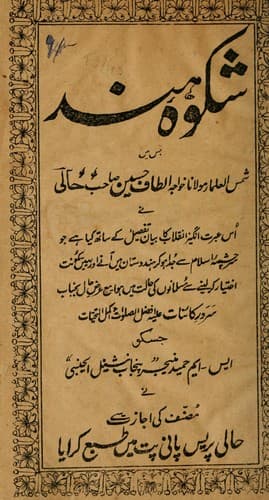 شکوۂ ہند
جس میں
شمس العلماء مولانا خواجہ الطاف حسین صاحب حالی
نے
اُس عبرت انگیز انقلاب کا بیان تفصیل کے ساتھ کیا ہے جو
سے جدا ہو کر ہندوستان میں آنے اور یہیں سکونت
اختیار کر لینے سے مسلمانوں کی حالت میں ہوا مع عرض حال بجناب
سرور کائنات علیہ افضل الصلوات و اکمل التحیات
جسکو
ایس - ایم حمید منیجر پنجاب نیشنل ایجنسی
نے
مصنف کی اجازت سے
حالی پریس پانی پت میں طبع کرایا